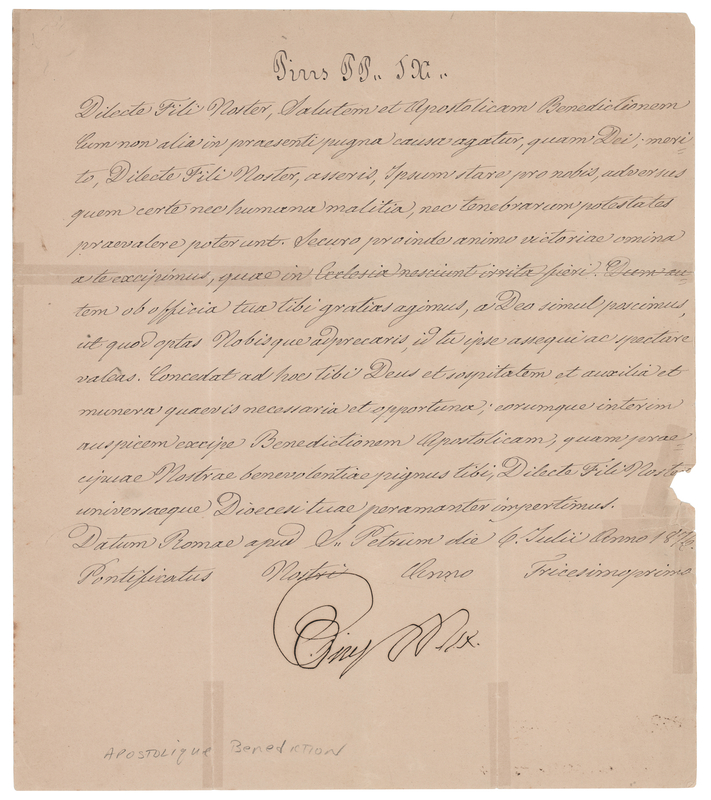 Pius PP. IX.
Dilecte Fili Noster, Salutem et Apostolicam Benedictionem
Cum non alia in praesenti pugna causa agatur, quam Dei; meri-
to, Dilecte Fili Noster, asseris, Ipsum stare pro nobis, adversus
quem certe nec humana malitia, nec tenebrarum potestates
praevalere poterunt. Securo proinde animo victoriae omina
a te excipimus, quae in Ecclesia nesciunt irrita fieri. Dum au-
tem ob officia tua tibi gratias agimus, a Deo simul poscimus,
ut quod optas Nobisque adprecaris, id tu ipse assequi ac spectare
valeas. Concedat ad hoc tibi Deus et sospitatem et auxilia et
munera quaevis necessaria et opportuna; eorumque interim
auspicem excipe Benedictionem Apostolicam, quam prae-
cipuae Nostrae benevolentiae pignus tibi, Dilecte Fili Noster
universaeque Dioecesi tuae peramanter impertimus.
Datum Romae apud S. Petrum die 6. Julii Anno
Pontificatus Nostri Anno Tricesimoprimo
Pius PP. IX.
APOSTOLIQUE BENEDIKTION